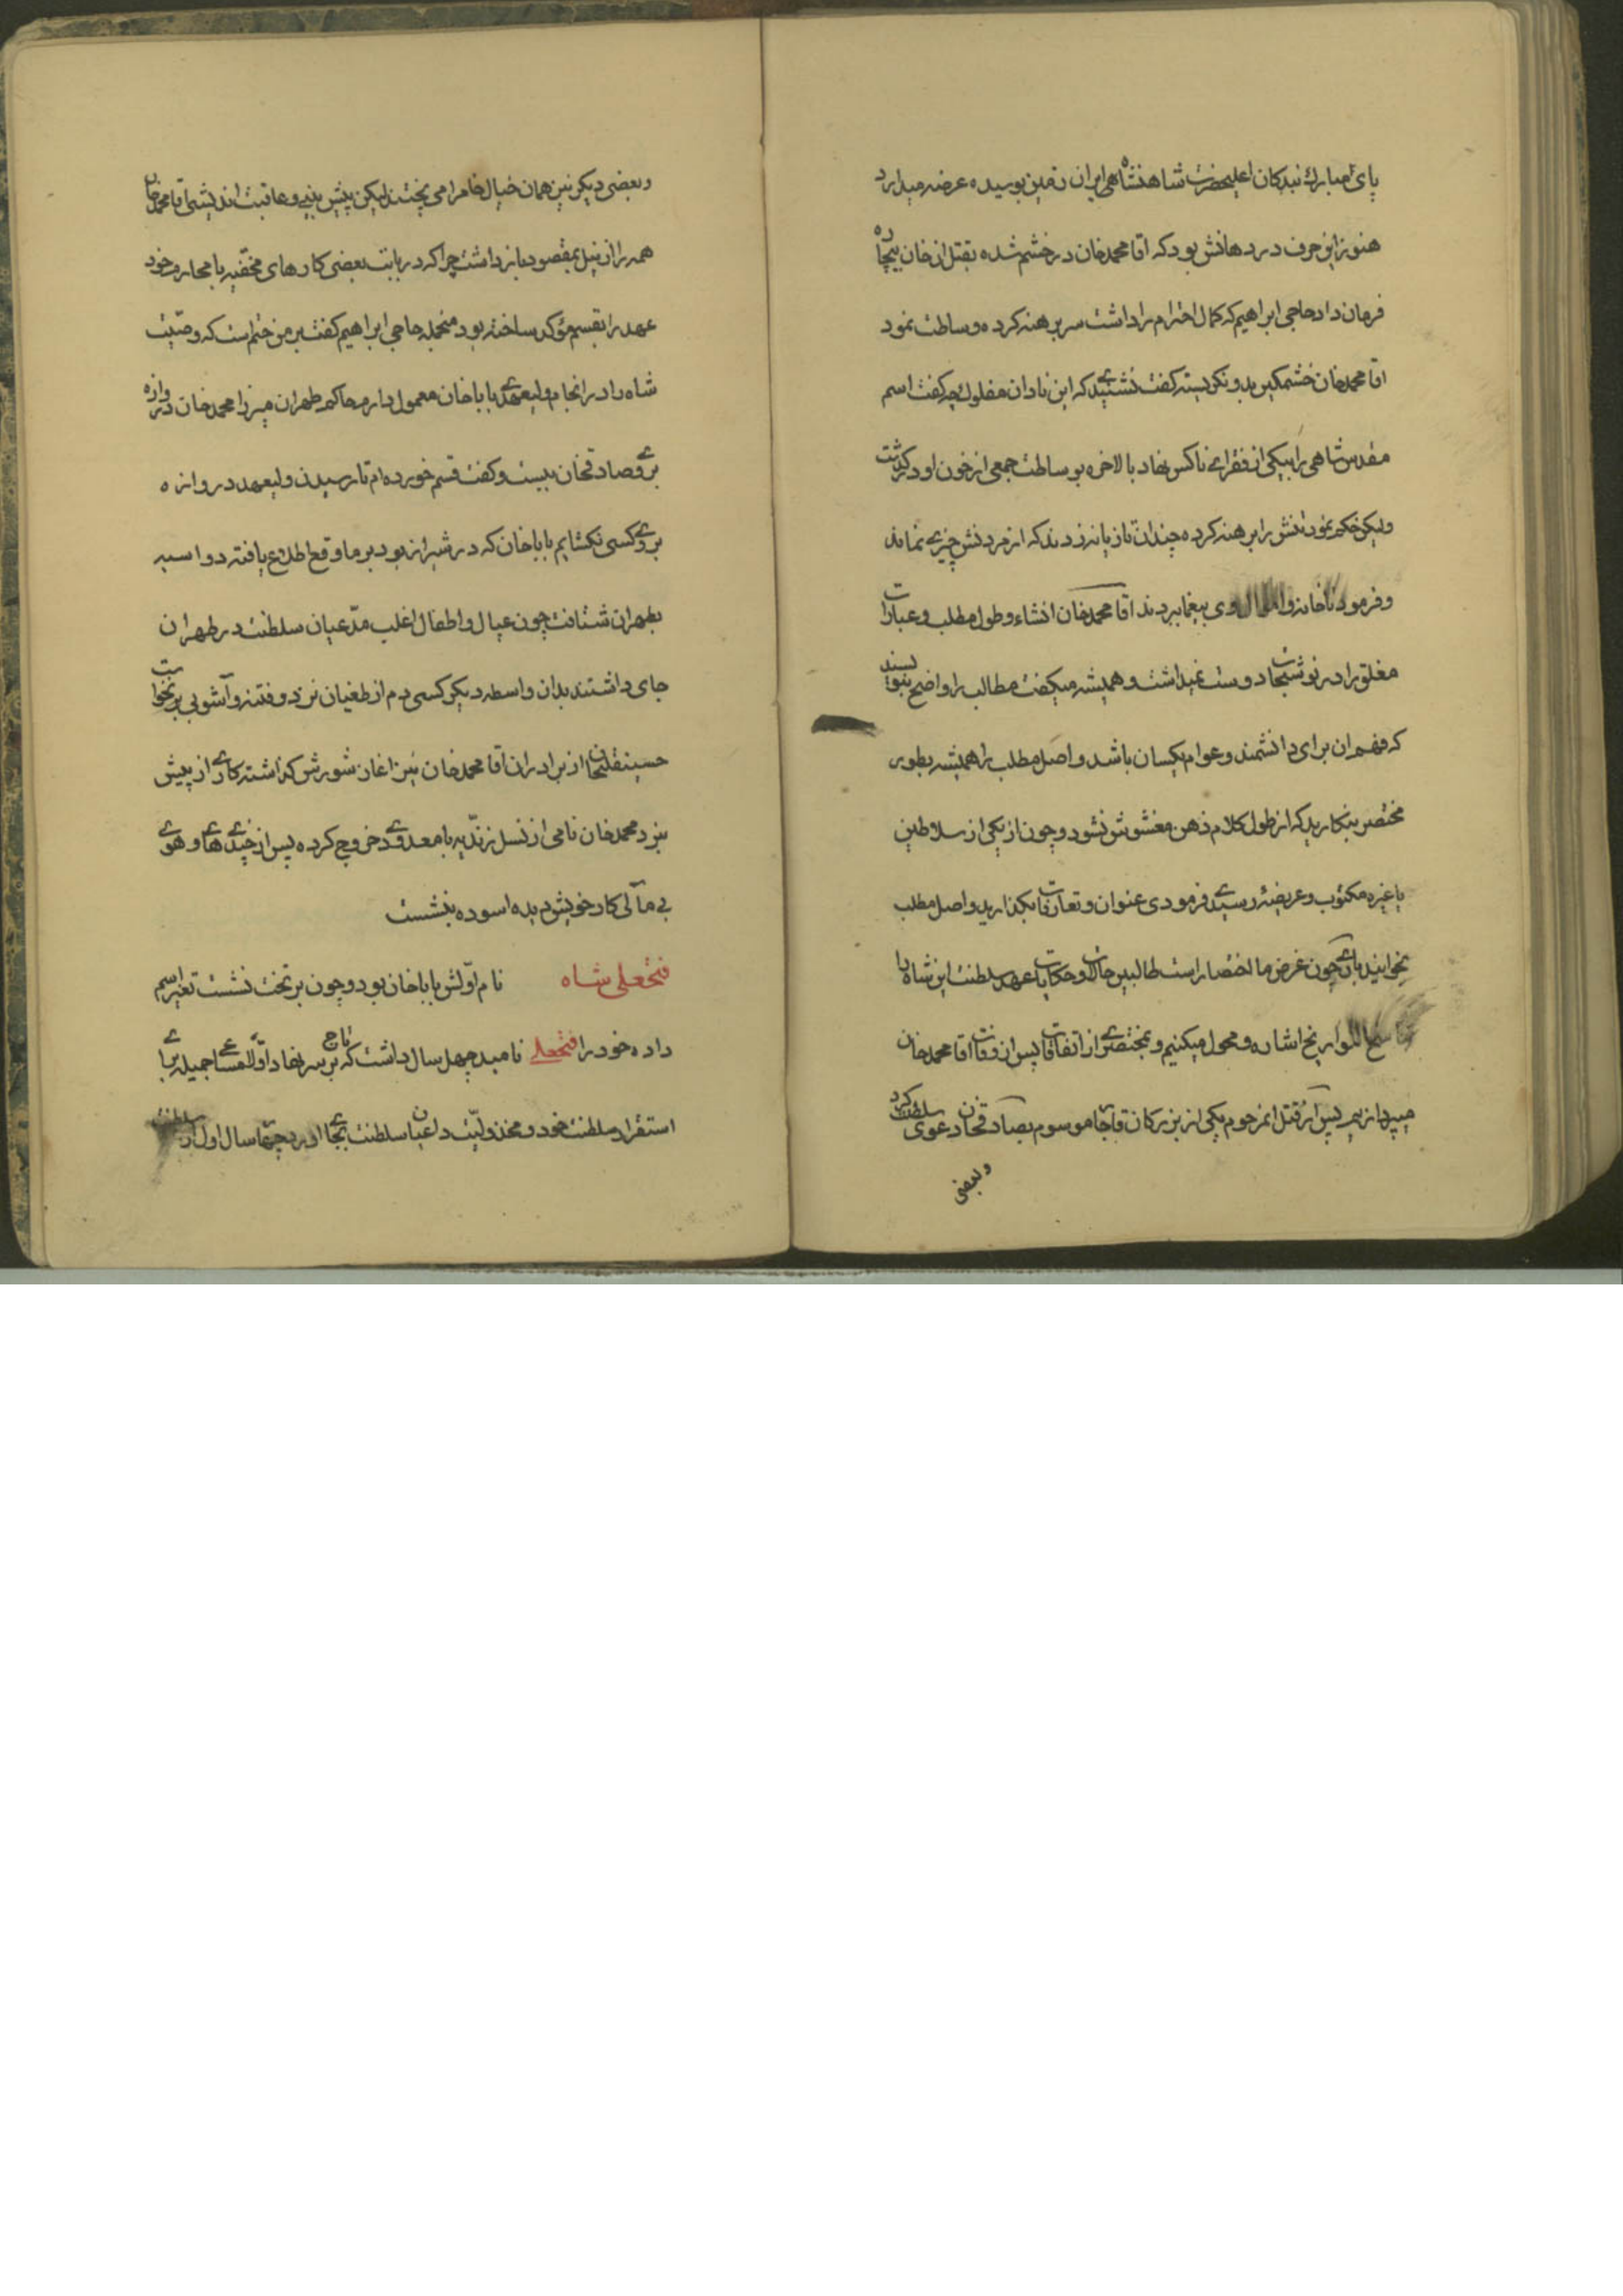 پای مبارک بندکان اعلیحضرت شاهنشاهی ایران زمین بوسیده عرضه میدارد
هنوز این حرف در دهانش بود که اقا محمدخان در خشم شده بقتل ان خان بیچاره
فرمان داد حاجی ابراهیم که کمال احترام را داشت سر برهنه کرده وساطت نمود
اقا محمدخان خشمکین بدو نکریسته کفت نشنیدی که این نادان مفلوک چه کفت اسم
مقدس شاهی را بیکی از فقرای ناکس نهاد بالاخره بوساطت جمعی از خون او درکذشت
ولیکن حکم نمود تنش را برهنه کرده چندان تازیانه زدند که از مردنش چیزی نماند
و فرمود تا خانه و اموال وی بیغما بردند اقا محمدخان انشاء و طول مطلب و عبارات
مغلق را در نوشتجات دوست نمیداشت و همیشه میکفت مطالب را واضح بنویسند
که فهم ان برای دانشمند و عوام یکسان باشد و اصل مطلب را همیشه بطور
مختصر بنکارید که از طول کلام ذهن مغشوش نشود و چون از یکی از سلاطین
یا غیره مکتوب و عریضهٔ رسیدی فرمودی عنوان و تعارفات بکذارید و اصل مطلب
بخوانید باری چون غرض ما اختصار است طالبین حالات و حکایات عهد سلطنت این شاه را
ناسخ التواریخ اشاره و محول میکنیم و بمختصری از اتفاقات پس از وفات اقا محمدخان
میپردازیم پس از قتل انمرحوم یکی از بزرکان قاجار موسوم بصادقخان دعوی سلطنت کرد
و بعضی
و بعضی دیکر نیز همان خیال خام را می پختند لیکن پیش بینی و عاقبت اندیشی اقا محمدخان
همه را از نیل بمقصود بازداشت چرا که در بابت بعضی کارهای مخفیه با محارم خود
عهد را بقسم مؤکد ساخته بود منجمله حاجی ابراهیم کفت بر من حتم است که وصیت
شاه را در انجام ولیعهدی باباخان معمول دارم حاکم طهران میرزا محمدخان دروازه
بروی صادقخان ببست و کفت قسم خورده ام تا رسیدن ولیعهد دروازه
بروی کسی نکشایم باباخان که در شیراز بود بر ماوقع اطلاع یافته دو اسبه
بطهران شتافت چون عیال و اطفال اغلب مدّعیان سلطنت در طهران
جای داشتند بدان واسطه دیکر کسی دم از طغیان نزد و فتنه و آشوبی برنخواست
حسینقلیخان از برادران اقا محمدخان نیز اغاز شورش کذاشته کاری از پیش
نبرد محمدخان نامی از نسل زندّیه با معدودی خروج کرده پس از چندی های و هوی
بی مآلی کار خویش دیده اسوده بنشست
فتحعلی شاه نام اوّلش باباخان بود و چون بر تخت نشست تغیر اسم
داده خود را فتحعلی نامید چهل سال داشت که تاج بر سر نهاد اوّلا مساعی جمیله برای
استقرار سلطنت خود و مخذولیّت داعیان سلطنت بجای اورد چهار سال اول از سلطنت